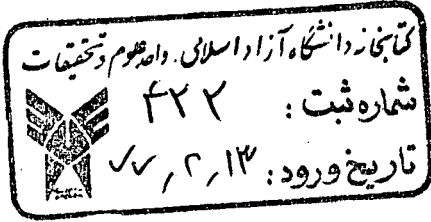 کتابخانه دانشگاه آزاد اسلامی. واحد علوم و تحقیقات
شماره ثبت : ۴۲۲
تاریخ ورود: ۷۷٫۲٫۱۳